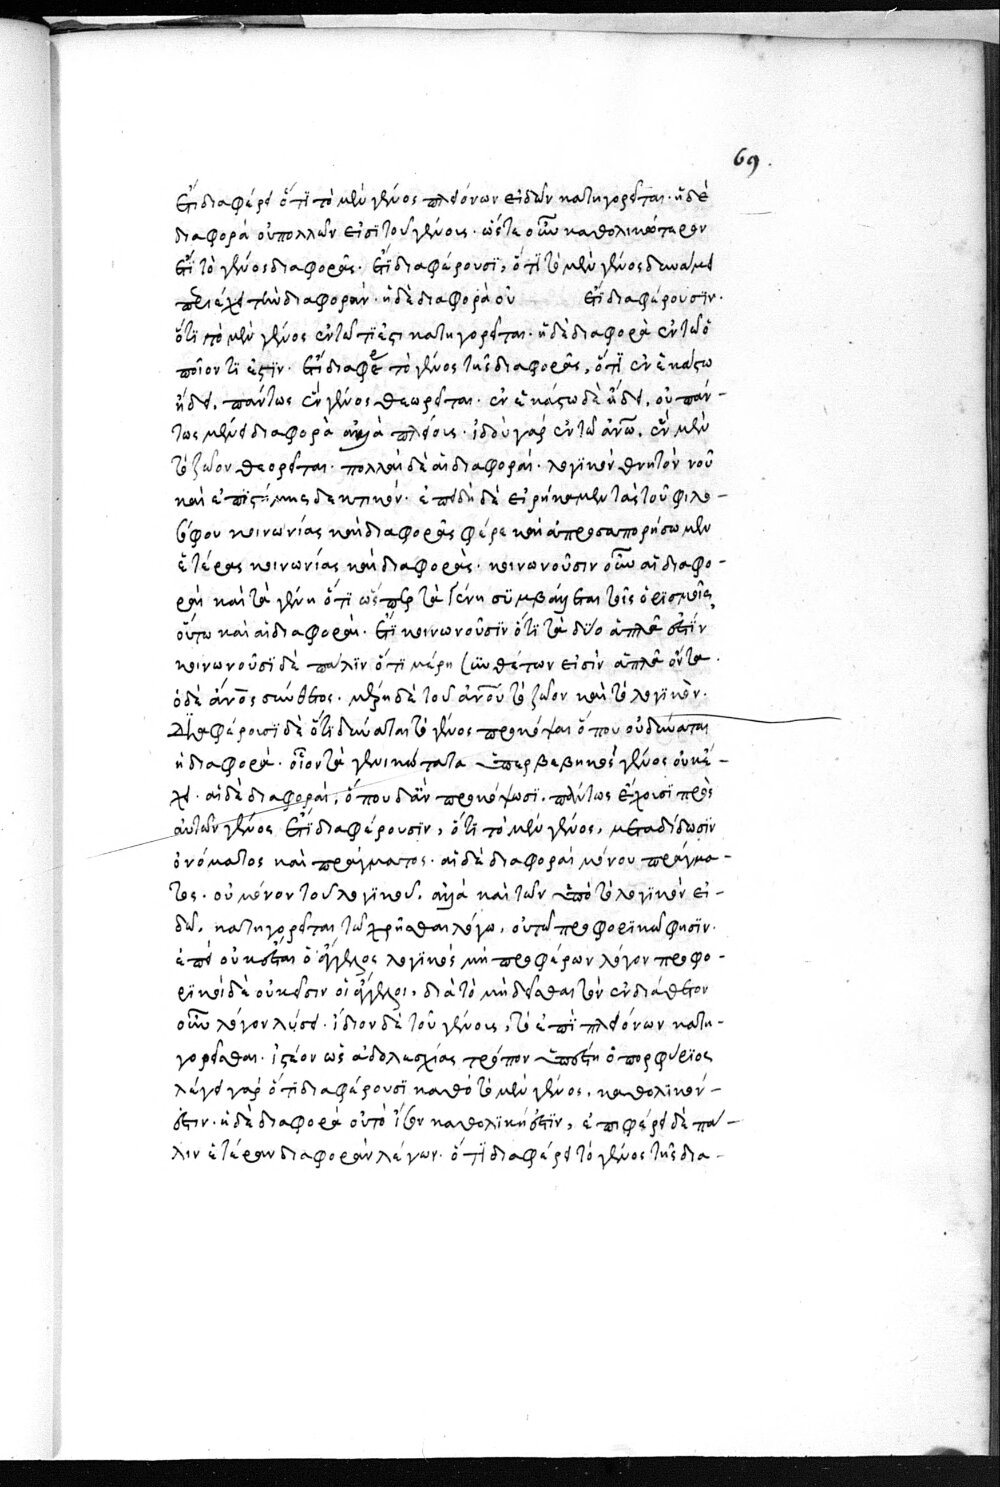 69.
ἔτι διαφέρει ὅτι τὸ μὲν γένος πλειόνων εἰδῶν κατηγορεῖται· ἡ δὲ
διαφορὰ οὐ πολλῶν εἰσὶ τοῦ γένους· ὥστε οὖν καθολικώτερον
ἔτι τὸ γένος διαφορᾶς· ἔτι διαφέρουσι, ὅτι τὸ μὲν γένος δυνάμει
περιέχει τὴν διαφοράν· ἡ δὲ διαφορὰ οὐ ἔτι διαφέρουσιν·
ὅτι τὸ μὲν γένος ἐν τῷ τί ἐστι κατηγορεῖται· ἡ δὲ διαφορὰ ἐν τῷ ὁ
ποῖον τί ἐστιν· ἔτι διαφέρει τὸ γένος τῆς διαφορᾶς, ὅτι ἐν ἑκάστω
εἴδει, πάντως ἓν γένος θεωρεῖται· ἐν ἑκάστω δὲ εἴδει, οὐ πάν-
τως μία διαφορὰ ἀλλὰ πλείους· ἰδοὺ γὰρ ἐν τῷ ἀνω, ἓν μὲν
τὸ ζῶον θεορεῖται· πολλαὶ δὲ αἱ διαφοραί· λογικὸν θνητὸν νοῦ
καὶ ἐπιστήμης δεκτικόν· ἐπειδὴ δὲ εἰρήκαμεν τὰς τοῦ φιλο-
σόφου κοινωνίας καὶ διαφορᾶς φέρε καὶ προσαπορήσωμεν
ἑτέρας κοινωνίας καὶ διαφοράς· κοινωνοῦσιν οὖν αἱ διαφο-
ραὶ καὶ τὰ γένη ὅτι ὥσπερ τὰ γένη συμβάλλεται τοῖς ὁρισμοῖς,
οὕτω καὶ αἱ διαφοραί· ἔτι κοινωνοῦσιν ὅτι τὰ δύο ἁπλᾶ ἐστίν
κοινωνοῦσι δὲ πάλιν ὅτι μέρη συνθέτων εἰσὶν ἁπλᾶ ὄντα·
ὁ δὲ ἄνος σύνθετος· μέρη δὲ τοῦ ἀνου τὸ ζῶον καὶ τὸ λογικὸν·
Διαφέρουσι δὲ ὅτι δύναται τὸ γένος προκόψαι ὅπου οὐ δύναται
ἡ διαφορά· οἷον τὰ γενικώτατα ὑπερβεβηκὸς γένος οὐκ ἔ-
χει· αἱ δὲ διαφοραὶ, ὅπου δἂν προκόψωσι, πάντως ἔχουσι πρὸς
αὐτῶν γένος ἔτι διαφέρουσιν, ὅτι τὸ μὲν γένος, μεταδίδωσιν
ὀνόματος καὶ πράγματος· αἱ δὲ διαφοραὶ μόνου πράγμα-
τος· οὐ μόνον τοῦ λογικοῦ, ἀλλὰ καὶ τῶν ὑπὸ τὸ λογικὸν εἰ-
δῶ, κατηγορεῖται τῷ χρῆσθαι λόγω, οὕτω προφορικῶ φησίν·
ἐπεὶ οὐκ ἔσται ὁ ἄγγελος λογικὸς μὴ προφέρων λόγον προφο-
ρικοὶ δὲ οὐκ εἰσιν οἱ ἄγγελοι, διὰ τὸ μὴ δεῖσθαι τὸν ἐνδιάθετον
οὖν λόγον λύσει· ἴδιον δὲ τοῦ γένους, τὸ ἐπὶ πλειόνων κατη-
γορεῖσθαι· ἰστέον ὡς ἀδολεσχίας τρόπον ὑπέστη ὁ πορφύριος
λέγει γὰρ ὅτι διαφέρουσι καθὸ τὸ μὲν γένος, καθολικόν-
ἐστιν· ἡ δὲ διαφορὰ οὐ τὸ ἴσον καθολικὴ ἐστὶν, ἐπιφέρει δὲ πά-
λιν ἑτέραν διαφορὰν λέγων· ὅτι διαφέρει τὸ γένος τῆς δια-